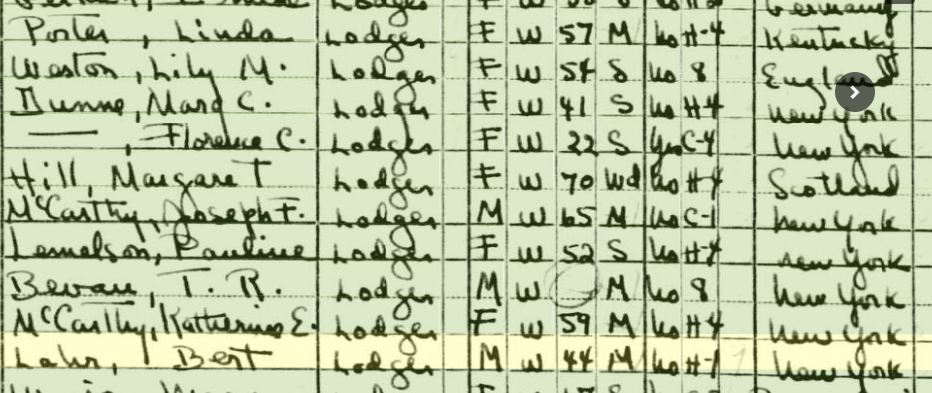 Lodger F W Germany
Porter, Linda Lodger F W 57 M No H-4 Kentucky
Weston, Lily M. Lodger F W 54 S No 8 England
Dunne, Mary C. Lodger F W 41 S No H4 New York
——, Florence C. Lodger F W 22 S Yes C-4 New York
Hill, Margaret Lodger F W 70 Wd No H4 Scotland
McCarthy, Joseph F. Lodger M W 65 M No C-1 New York
Lemelson, Pauline Lodger F W 52 S No H4 New York
Bevan, T. R. Lodger M W M No 8 New York
McCarthy, Katherine E. Lodger F W 59 M No H4 New York
Lahr, Bert Lodger M W 44 M No H-1 New York